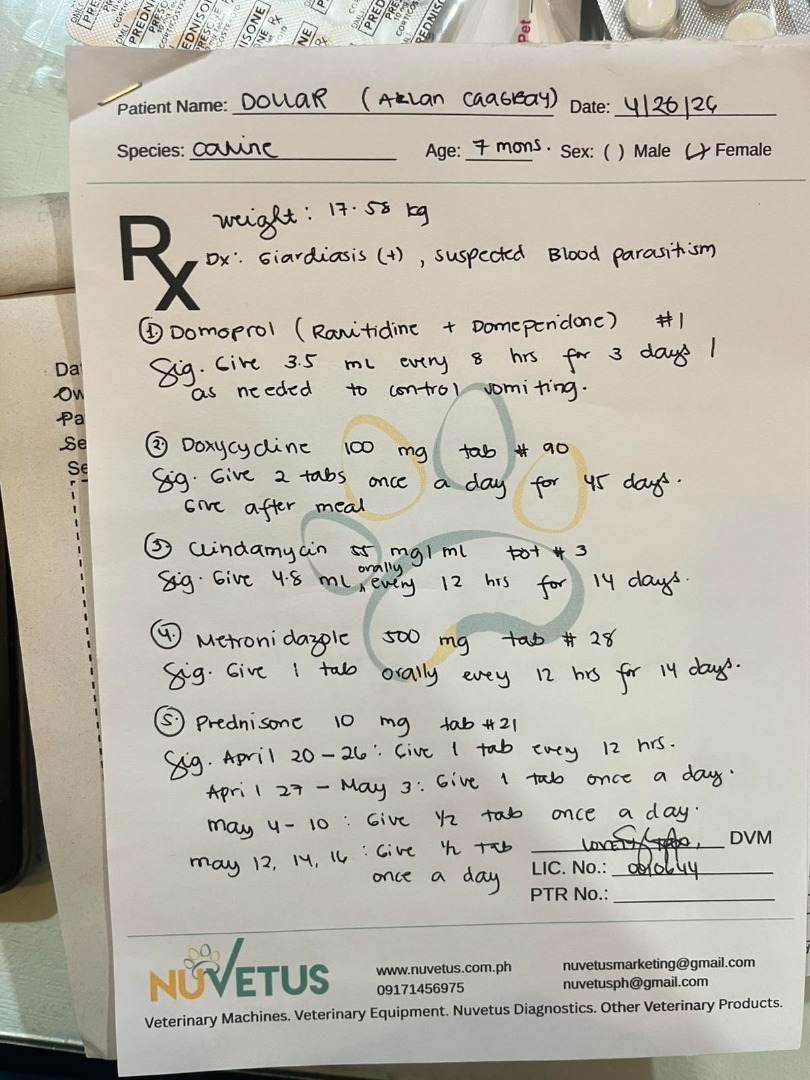 PREDNISONE
Pet
Patient Name: DOLLAR (ARLAN CAAGBAY) Date: 4/20/26
Species: canine Age: 7 mons. Sex: ( ) Male (✓) Female
Rx
weight: 17.58 kg
Dx: Giardiasis (+), suspected Blood parasitism
1. Domoprol (Ranitidine + Domeperidone) #1
Sig. Give 3.5 mL every 8 hrs for 3 days /
as needed to control vomiting.
2. Doxycycline 100 mg tab # 90
Sig. Give 2 tabs once a day for 45 days.
Give after meal
3. Clindamycin mg/ml # 3
Sig. Give 4.8 mL orally every 12 hrs for 14 days.
4. Metronidazole 500 mg tab # 28
Sig. Give 1 tab orally evey 12 hrs for 14 days.
5. Prednisone 10 mg tab #21
Sig. April 20-26: Give 1 tab every 12 hrs.
April 27 - May 3: Give 1 tab once a day.
may 4-10: Give 1/2 tab once a day.
may 12, 14, 16: Give 1/2 tab
once a day
DVM
LIC. No.:
PTR No.:
NUVETUS
www.nuvetus.com.ph
09171456975
nuvetusmarketing@gmail.com
nuvetusph@gmail.com
Veterinary Machines. Veterinary Equipment. Nuvetus Diagnostics. Other Veterinary Products.